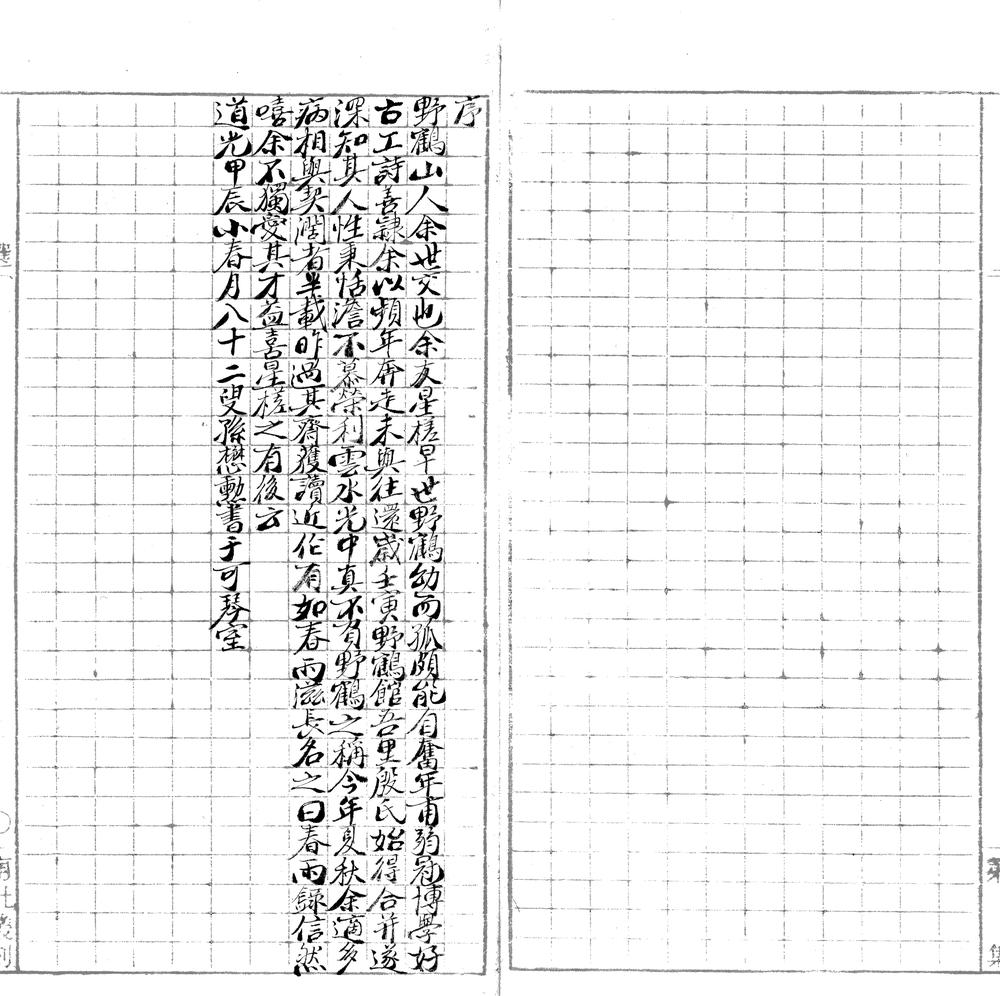 序
野鶴山人余世交也余友星槎早世野鶴幼而孤頗能自奮年甫弱冠博學好
古工詩善隸余以頻年奔走未與往還歲壬寅野鶴館吾里殷氏始得合并遂
深知其人性秉恬澹不慕榮利雲水光中真不負野鶴之稱今年夏秋余適多
病相與契濶者半載昨過其齋獲讀近作有如春雨滋長名之曰春雨録信然
嘻余不獨愛其才益喜星槎之有後云
道光甲辰小春月八十二叟孫懋勳書于可琴室
集